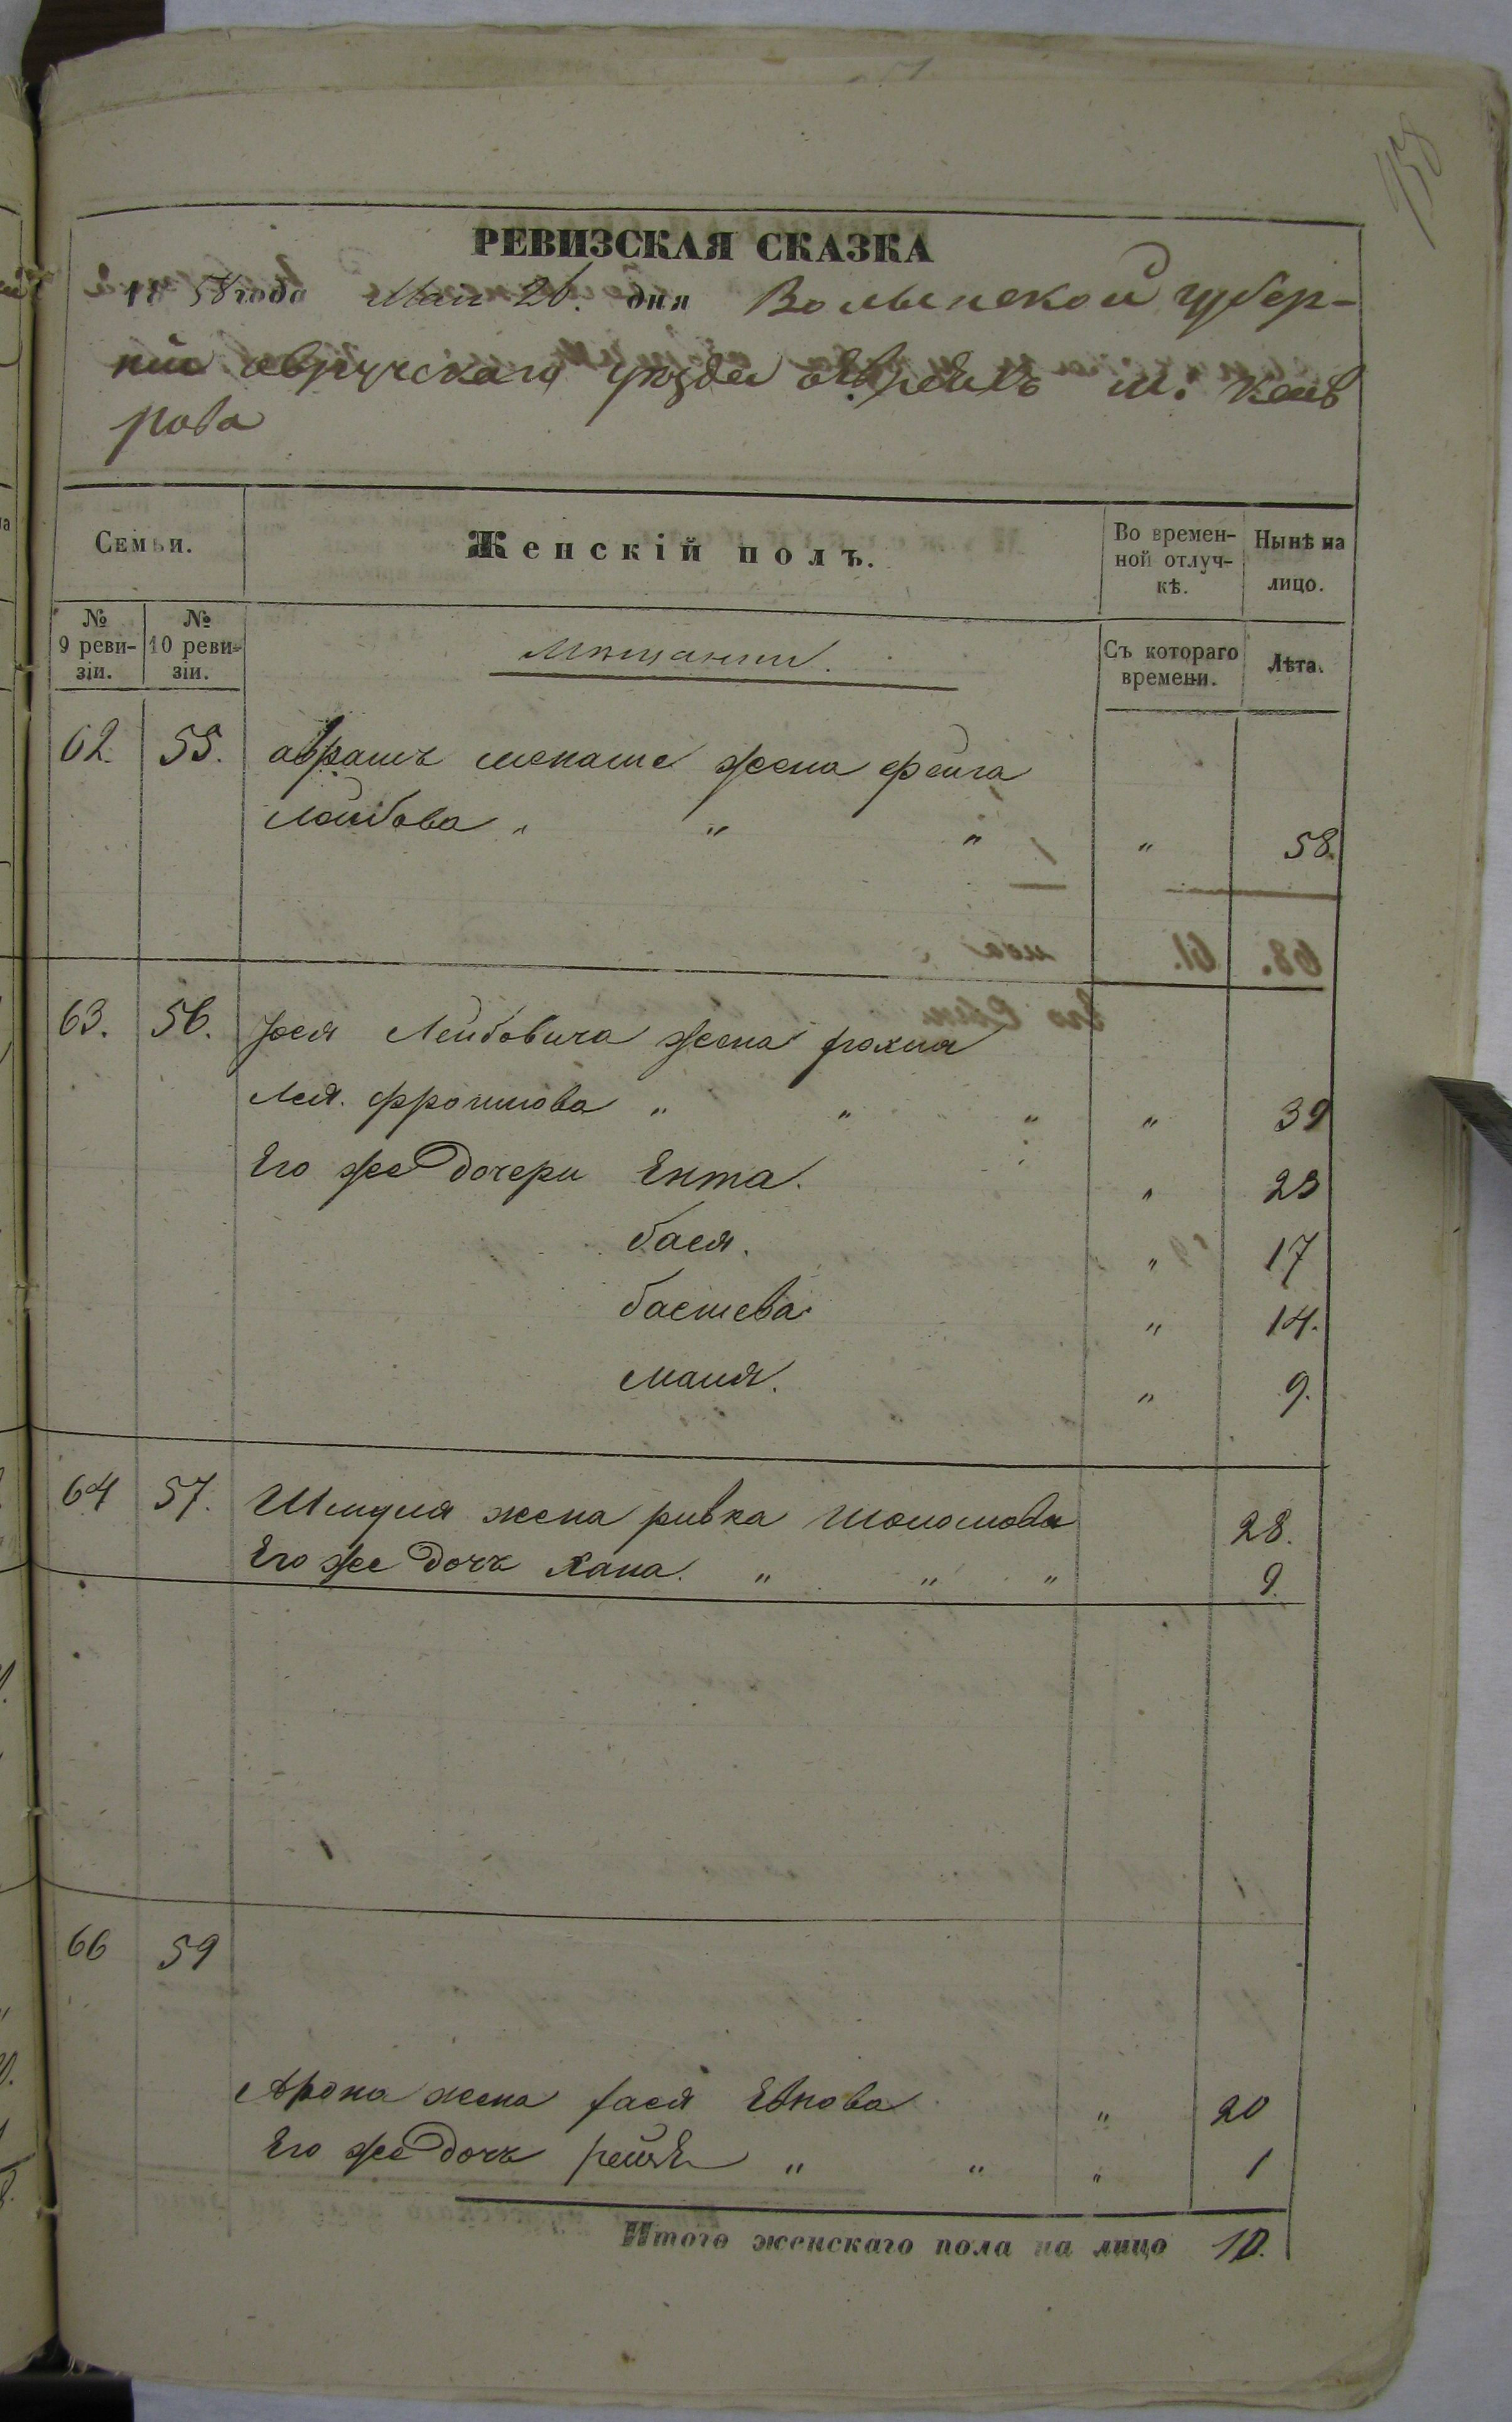 РЕВИЗСКАЯ СКАЗКА
1858 года Мая 26. дня Волынской губер-
ніи овручскаго уезда евреевъ м:
рова
Семьи.
Женскій полъ.
Во времен-
ной отлуч-
кѣ.
Нынѣ на
лицо.
№
9 реви-
зіи.
№
10 реви-
зіи.
Мѣщанин.
Съ котораго
времени.
Лѣта.
62. 55. аврамъ жена фейга
Лейбова " " " 1 " 58.
63. 56. Іося Лейбовича жена
Лея. фроимова " " " " 39
Его же дочери Ента. " 23
бася. " 17
басшева " 14.
маня. " 9.
64 57. Шмуля жена ривка Шоломова 28.
Его же дочь хана. " " " 9.
66 59
Арона жена бася " 20
Его же дочь " " " 1
Итого женскаго пола на лицо 10.